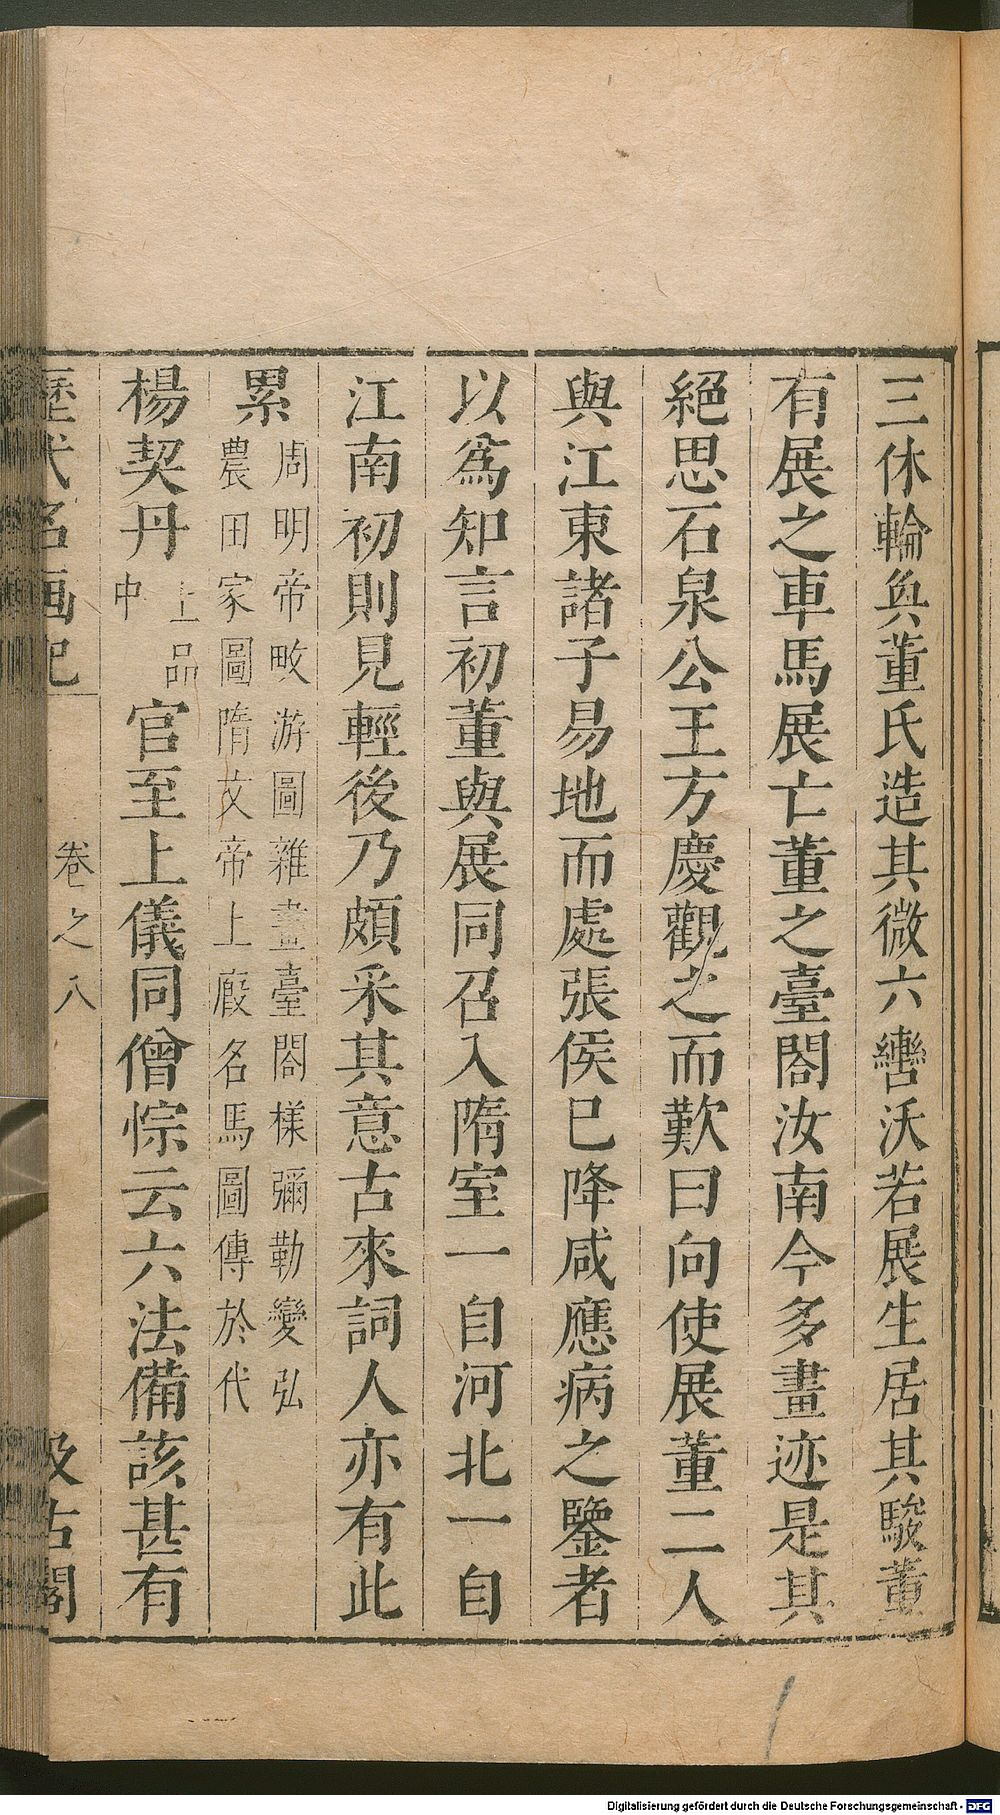 三休輪奐董氏造其微六轡沃若展生居其駿董
有展之車馬展亡董之臺閣汝南今多畫迹是其
絕思石泉公王方慶觀之而歎曰向使展董二人
與江東諸子易地而處張侯已降咸應病之鑒者
以爲知言初董與展同召入隋室一自河北一自
江南初則見輕後乃頗采其意古來詞人亦有此
累
周明帝畋游圖雜畫臺閣樣彌勒變弘
農田家圖隋文帝上廄名馬圖傳於代
楊契丹
上品
中
官至上儀同僧悰云六法備該甚有
歷代名画記
卷之八
汲古閣
Digitalisierung gefördert durch die Deutsche Forschungsgemeinschaft - DFG